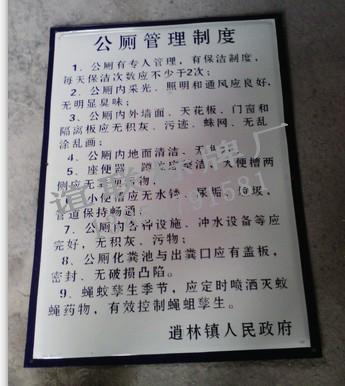 公厕管理制度
1、公厕有专人管理，有保洁制度，
每天保洁次数应不少于2次；
2、公厕内采光、照明和通风应良好，
无明显臭味；
3、公厕内外墙面、天花板、门窗和
隔离板应无积灰、污迹、蛛网、无乱
涂乱画；
4、公厕内地面清洁、无
5、座便器、 大便槽两
侧应无 物；
小便槽应无水锈、尿垢、垃圾，
管道保持畅通；
7、公厕内各种设施、冲水设备等应
完好，无积灰、污物；
8、公厕化粪池与出粪口应有盖板，
密封、无破损凸陷。
9、蝇蚊孳生季节，应定时喷洒灭蚊
蝇药物，有效控制蝇蛆孳生。
逍林镇人民政府